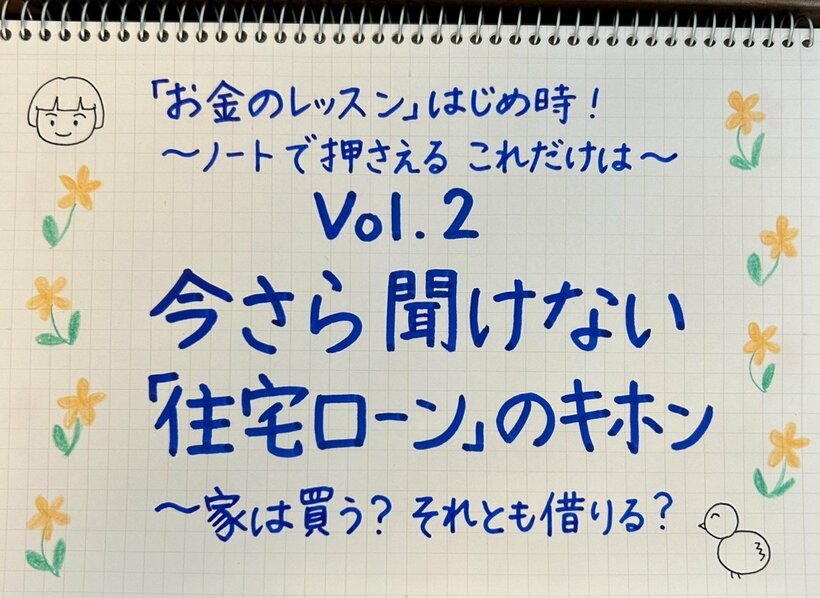 「お金のレッスン」はじめ時！
〜ノートで押さえる これだけは〜
Vol.2
今さら聞けない
「住宅ローン」のキホン
〜家は買う？それとも借りる？